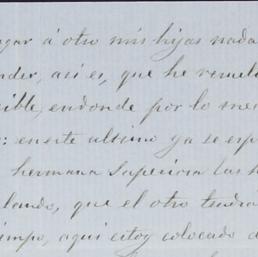 gar á otro mis hijas nada
nder, asi es, que he resuel
sible, endonde por lo me
: en este ultimo ya se esp
hermana Superiora las h
lando, que el otro tendrá
iempo, aqui estoy colocado d